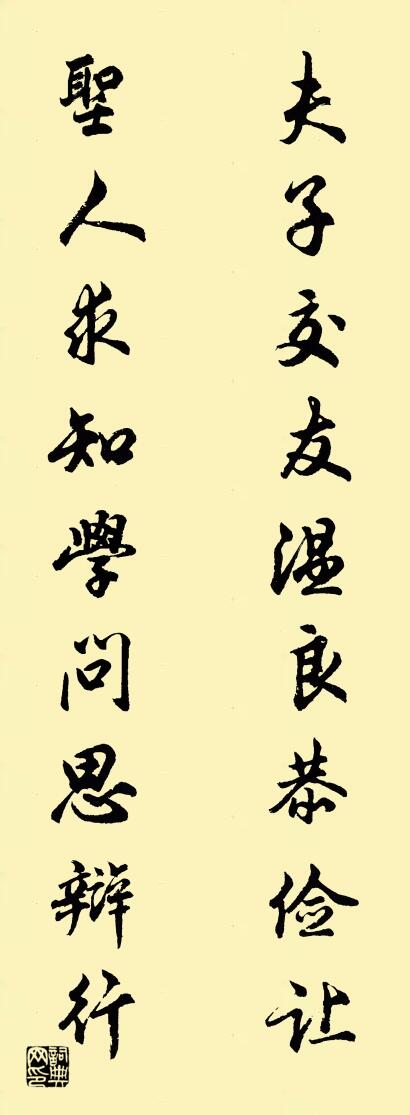 夫子交友温良恭俭让
聖人求知學问思辩行
詞典网印